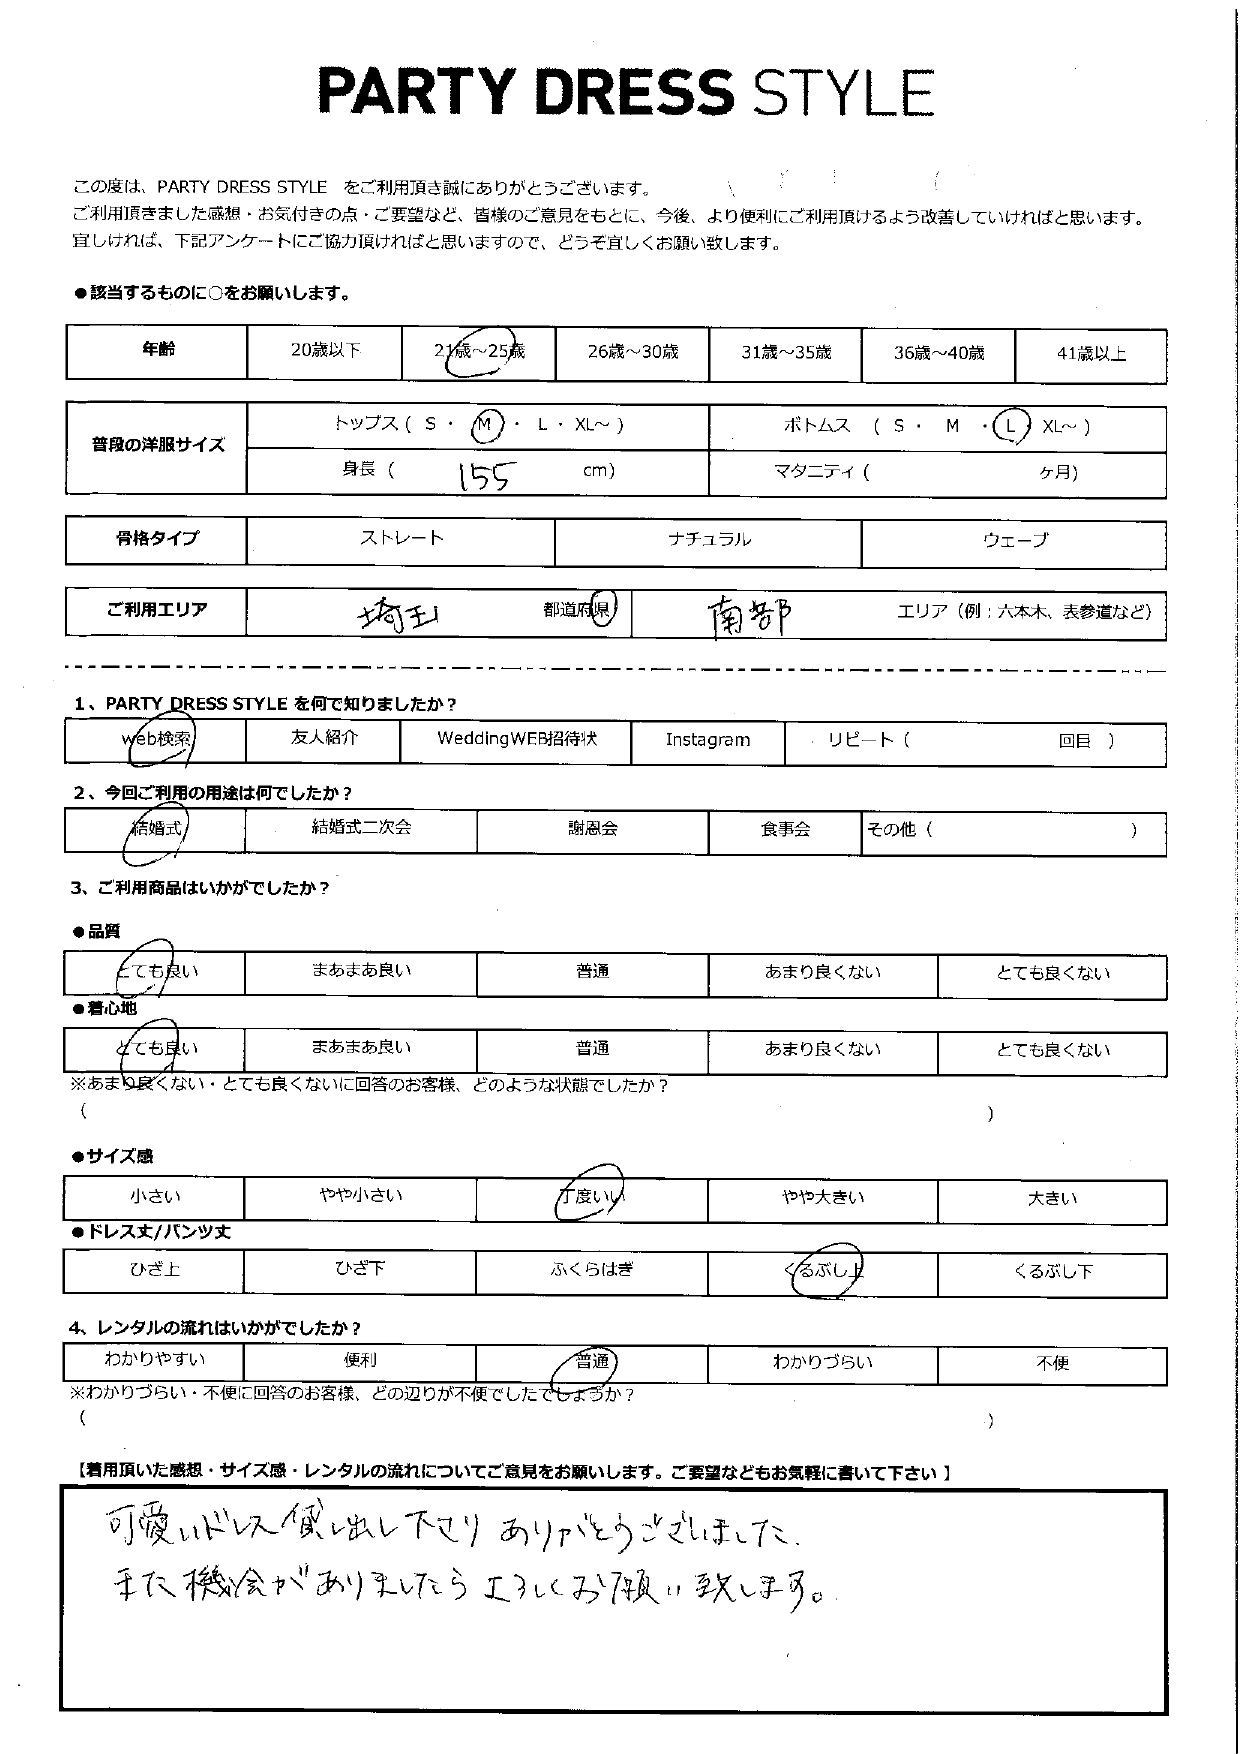 PARTY DRESS STYLE
この度は、PARTY DRESS STYLE をご利用頂き誠にありがとうございます。
ご利用頂きました感想・お気付きの点・ご要望など、皆様のご意見をもとに、今後、より便利にご利用頂けるよう改善していければと思います。
宜しければ、下記アンケートにご協力頂ければと思いますので、どうぞ宜しくお願い致します。
●該当するものに○をお願いします。
年齢 20歳以下 21歳～25歳 26歳～30歳 31歳～35歳 36歳～40歳 41歳以上
普段の洋服サイズ トップス ( S ・ M ・ L ・ XL～ ) ボトムス ( S ・ M ・ L XL～ )
身長 ( 155 cm) マタニティ ( ヶ月)
骨格タイプ ストレート ナチュラル ウェーブ
ご利用エリア 埼玉 都道府県 南部 エリア（例；六本木、表参道など）
1、PARTY DRESS STYLE を何で知りましたか？
web検索 友人紹介 WeddingWEB招待状 Instagram リピート ( 回目 )
2、今回ご利用の用途は何でしたか？
結婚式 結婚式二次会 謝恩会 食事会 その他 ( )
3、ご利用商品はいかがでしたか？
●品質
とても良い まあまあ良い 普通 あまり良くない とても良くない
●着心地
とても良い まあまあ良い 普通 あまり良くない とても良くない
※あまり良くない・とても良くないに回答のお客様、どのような状態でしたか？
( )
●サイズ感
小さい やや小さい 丁度いい やや大きい 大きい
●ドレス丈/パンツ丈
ひざ上 ひざ下 ふくらはぎ くるぶし上 くるぶし下
4、レンタルの流れはいかがでしたか？
わかりやすい 便利 普通 わかりづらい 不便
※わかりづらい・不便に回答のお客様、どの辺りが不便でしたでしょうか？
( )
【着用頂いた感想・サイズ感・レンタルの流れについてご意見をお願いします。ご要望などもお気軽に書いて下さい】
可愛いドレス貸し出し下さりありがとうございました.
また機会がありましたらよろしくお願い致します。